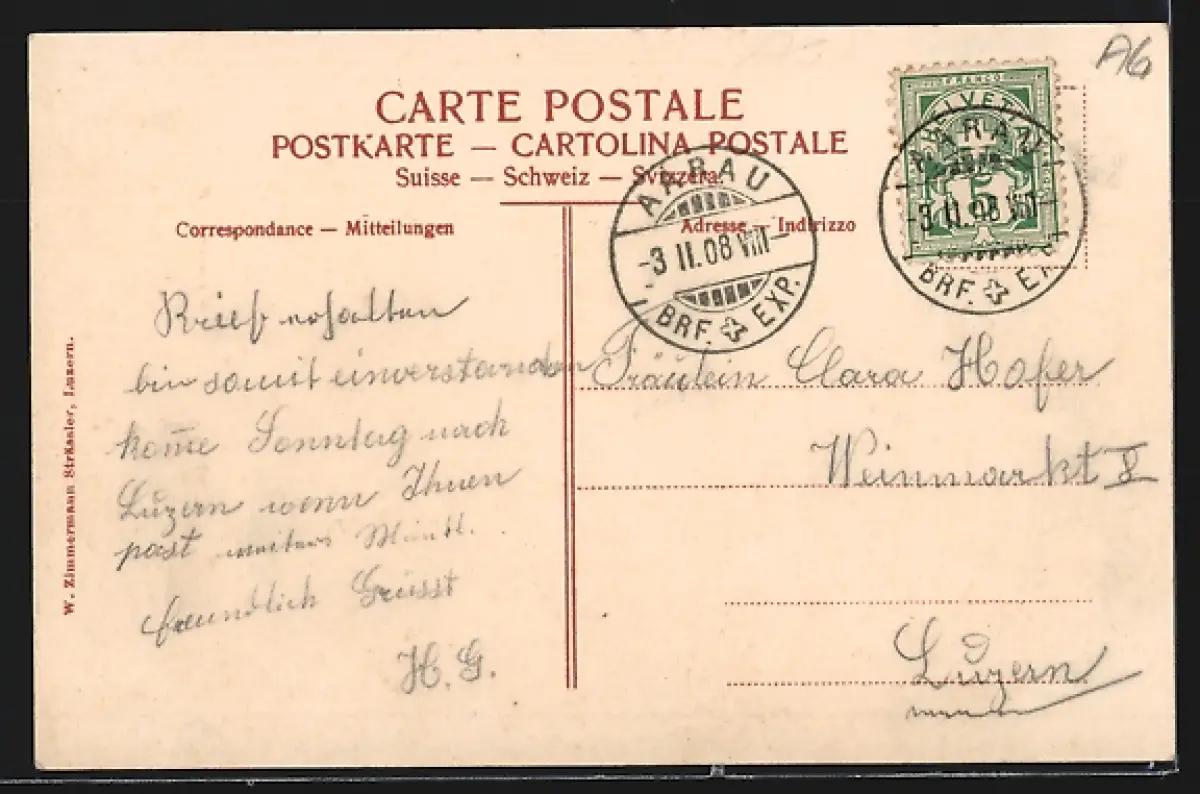 A6
CARTE POSTALE
POSTKARTE — CARTOLINA POSTALE
Suisse — Schweiz — Svizzera.
FRANCO
HELVETIA
5
AARAU
-3 II.08 VIII-
BRF. EXP.
AARAU
-3 II.08 VIII-
BRF. EXP.
Correspondance — Mitteilungen
Adresse — Indirizzo
Brief erhalten
bin somit einverstanden
kom̄e Sonntag nach
Luzern wenn Ihnen
past weiters Mündl.
freundlich Grüsst
H. G.
Fräulein Clara Hofer
Weinmarkt 8
Luzern
W. Zimmermann Strässler, Luzern.